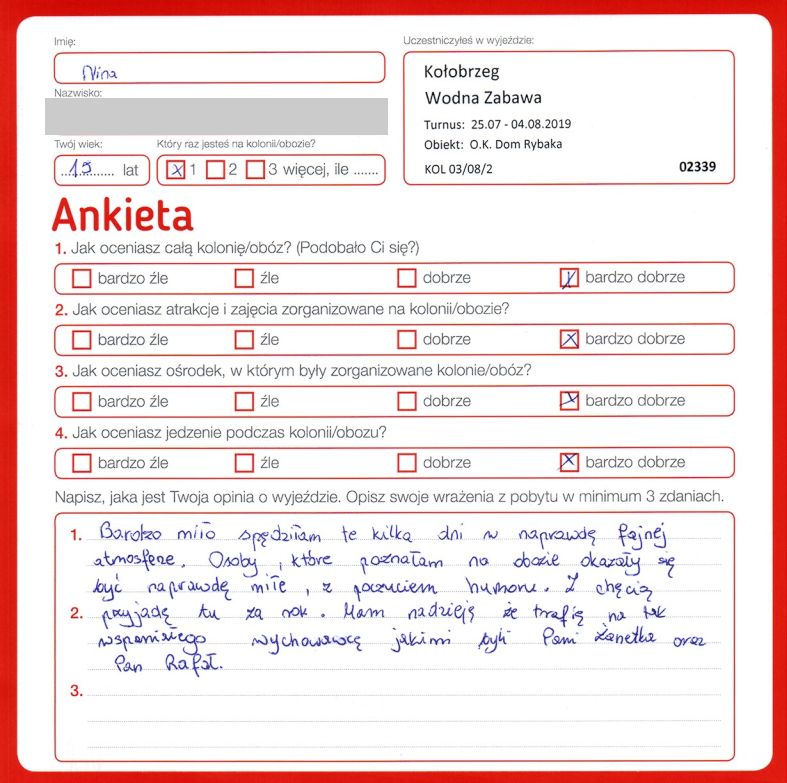 Imię:
Nina
Nazwisko:
Twój wiek:
15 lat
Który raz jesteś na kolonii/obozie?
x 1 2 3 więcej, ile .......
Uczestniczyłeś w wyjeździe:
Kołobrzeg
Wodna Zabawa
Turnus: 25.07 - 04.08.2019
Obiekt: O.K. Dom Rybaka
KOL 03/08/2 02339
Ankieta
1. Jak oceniasz całą kolonię/obóz? (Podobało Ci się?)
bardzo źle źle dobrze x bardzo dobrze
2. Jak oceniasz atrakcje i zajęcia zorganizowane na kolonii/obozie?
bardzo źle źle dobrze x bardzo dobrze
3. Jak oceniasz ośrodek, w którym były zorganizowane kolonie/obóz?
bardzo źle źle dobrze x bardzo dobrze
4. Jak oceniasz jedzenie podczas kolonii/obozu?
bardzo źle źle dobrze x bardzo dobrze
Napisz, jaka jest Twoja opinia o wyjeździe. Opisz swoje wrażenia z pobytu w minimum 3 zdaniach.
1. Bardzo miło spędziłam te kilka dni w naprawdę fajnej
atmosferze. Osoby, które poznałam na obozie okazały się
być naprawdę miłe, z poczuciem humoru. Z chęcią
2. przyjadę tu za rok. Mam nadzieję że trafię na tak
wspaniałego wychowawcę jakimi byli Pani Żanetka oraz
Pan Rafał.
3.